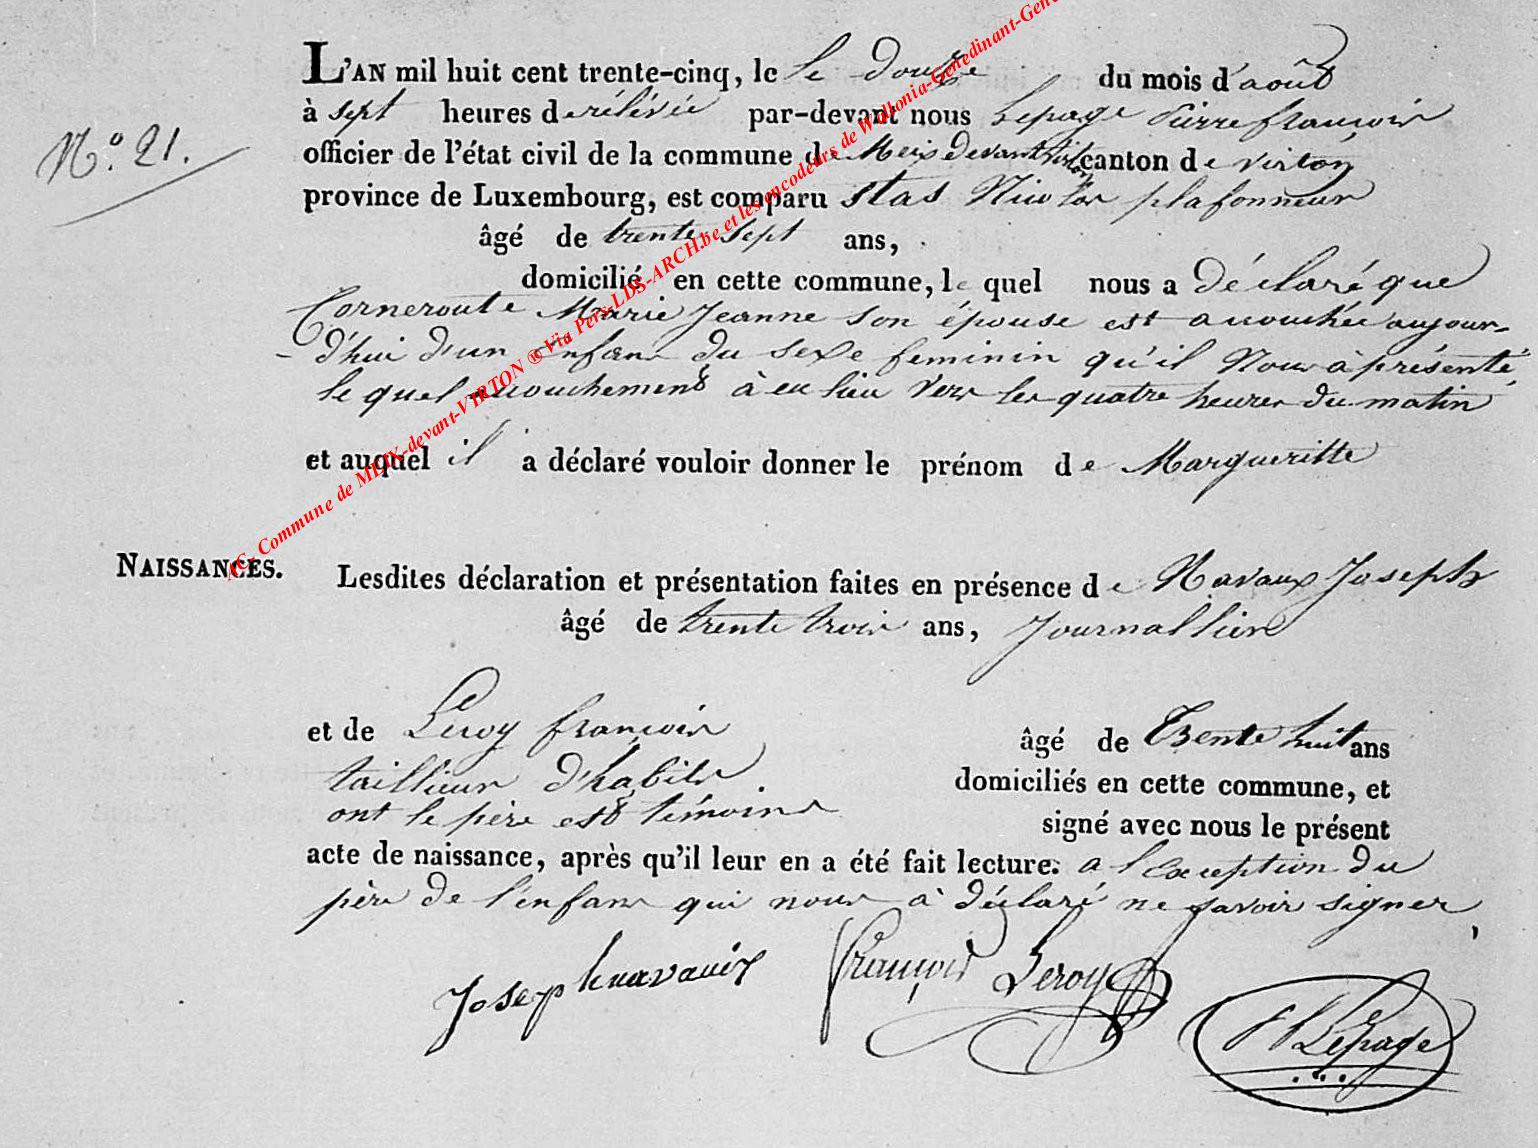 L'AN mil huit cent trente-cinq, le le douze du mois d'août
à sept heures de rélévée par-devant nous Lepage Pierre françois
N.° 21.
officier de l'état civil de la commune de Meix devant Virton canton de virton
province de Luxembourg, est comparu Stas Nicolas plafonneur
âgé de trente sept ans,
domicilié en cette commune, le quel nous a déclaré que
Corneroute Marie Jeanne son épouse est accouchée aujour-
-d'hui d'un enfant du sexe feminin qu'il Nous à présenté,
le quel accouchement à eu lieu vers les quatre heures du matin
et auquel il a déclaré vouloir donner le prénom de Margueritte
NAISSANCES.
Lesdites déclaration et présentation faites en présence de Navaux Joseph
âgé de trente trois ans, Journallier
et de Leroy françois âgé de Trente huit ans
taillieur d'habits domiciliés en cette commune, et
ont le père est témoins signé avec nous le présent
acte de naissance, après qu'il leur en a été fait lecture. a l'exception du
père de l'enfant qui nous à déclaré ne savoir signer,
Joseph navaux François Leroy Lepage
AG. Commune de MEIX-devant-VIRTON ® Via Pers-LDS-ARCH.be et les encodeurs de Wallonia-Genedinant-Gene